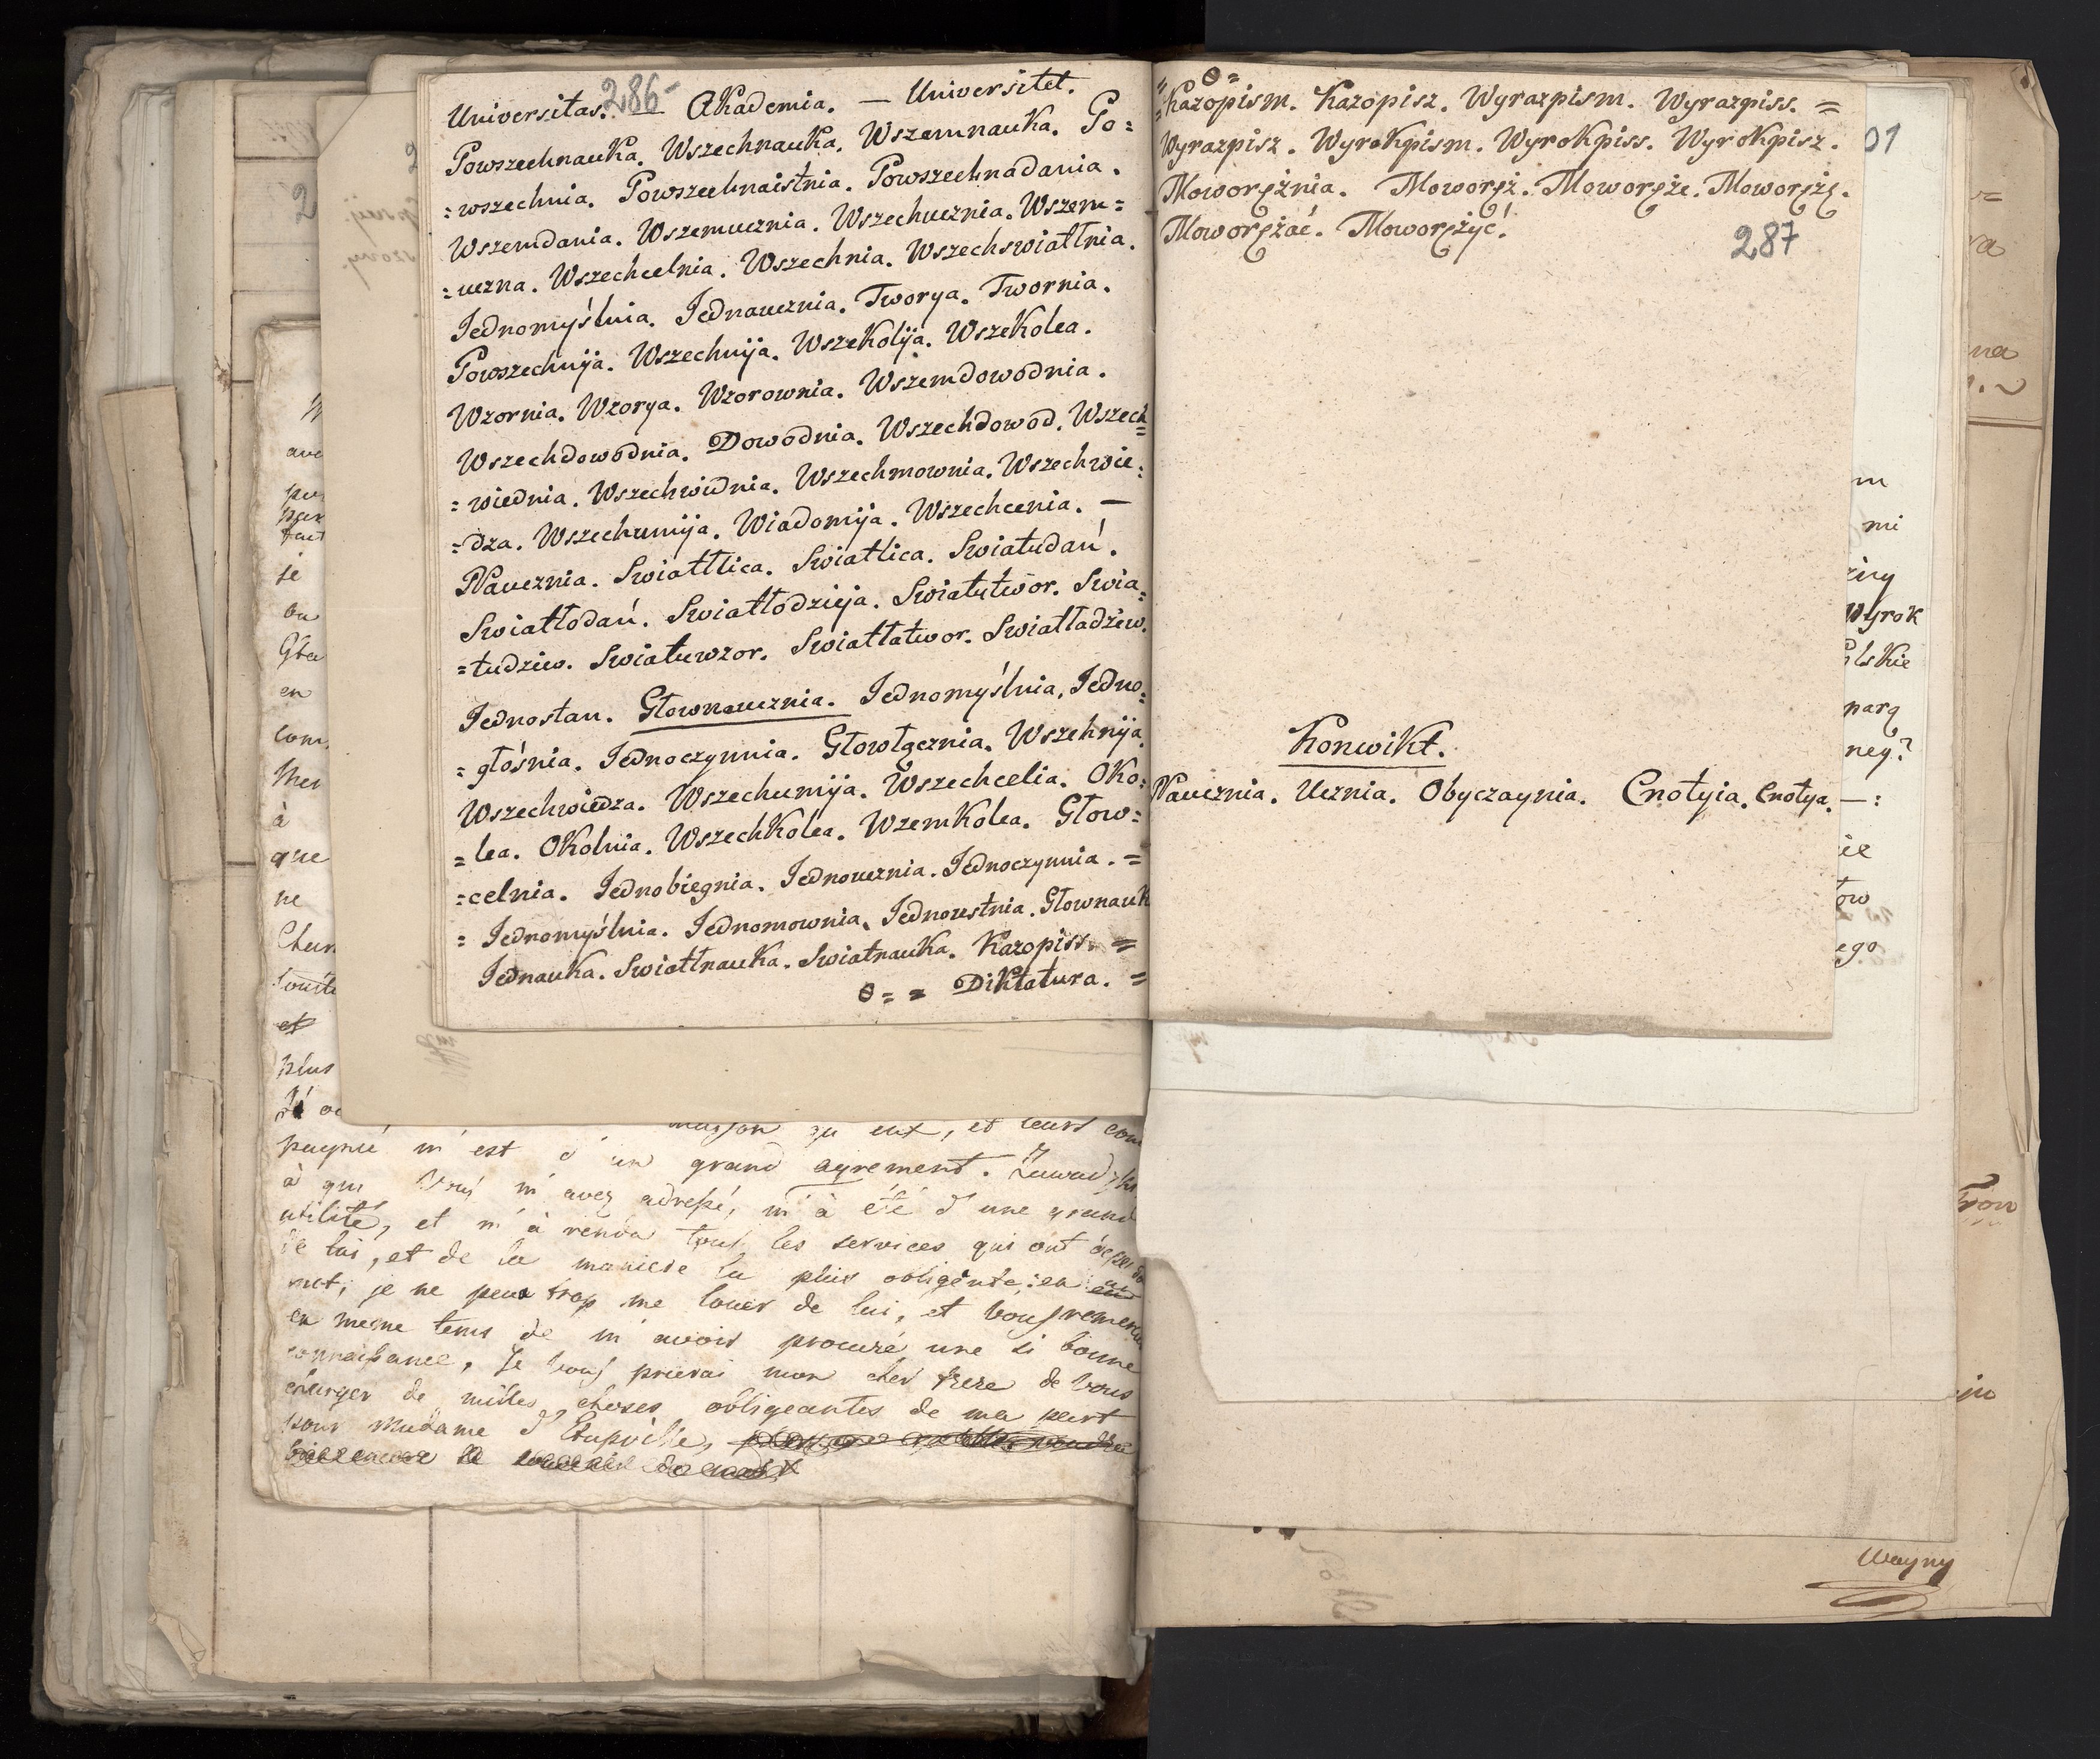 286
Universitas. — Akademia. — Universitet.
Powszechnauka. Wszechnauka. Wszemnauka. Po=
=wszechnia. Powszechnaistnia. Powszechnadania.
Wszemdania. Wszemucznia. Wszechucznia. Wszem=
=uczna. Wszechcelnia. Wszechnia. Wszechswiatłnia.
Jednomyślnia. Jednaucznia. Tworya. Twornia.
Powszechnija. Wszechnija. Wszekolija. Wszekolea.
Wzornia. Wzorya. Wzorownia. Wszemdowodnia.
Wszechdowodnia. Dowodnia. Wszechdowod. Wszech=
=wiednia. Wszechwidnia. Wszechmownia. Wszechwie=
=dza. Wszechumija. Wiadomija. Wszechcenia. —
Naucznia. Swiatłlica. Swiatlica. Swiatudań.
Swiatłodań. Swiatłodzieja. Swiatutwor. Swia=
=tudziw. Swiatuwzor. Swiatłatwor. Swiatładziew.
Jednostan. Głownaucznia. Jednomyślnia, Jedno=
=głośnia. Jednoczynnia. Głowłącznia. Wszehnija.
Wszechwiedza. Wszechumija. Wszechcelia. Oko=
=lea. Okolnia. Wszechkolea. Wzemkolea. Głow=
=celnia. Jednobiegnia. Jednoucznia. Jednoczynnia. =
= Jednomyślnia. Jednomownia. Jednoustnia. Głownauk
Jednauka. Swiatłnauka. Swiatnauka. Kazopiss. =
θ= = Diktatura. =
θ=
=Kazopism. Kazopisz. Wyrazpism. Wyrazpiss. =
Wyrazpisz. Wyrokpism. Wyrokpiss. Wyrokpisz.
Moworężnia. Moworęż. Moworęże. Moworężę.
Moworężać. Moworężyć.
287
Konwikt.
Naucznia. Ucznia. Obyczaynia. Cnotyia. Cnotya.
01
m
mi
Wyrok
parą
ney?
— :
ego
ave
je
en
à
que
ne
et
plus
et leurs
m'est d'un grand agrement.
à qui Vous m'avez adressé, m'à été d'une grand
utilité, et m'à rendu tous les services qui ont
de lui, et de la maniere la plus obligente; en
mot, je ne peux trop me louer de lui, et vous
en même tems de m'avoir procuré une si bonne
connaissance, Je vous prierai mon cher frere de vous
charger de milles choses obligeantes de ma part
pour Madame
Wayny